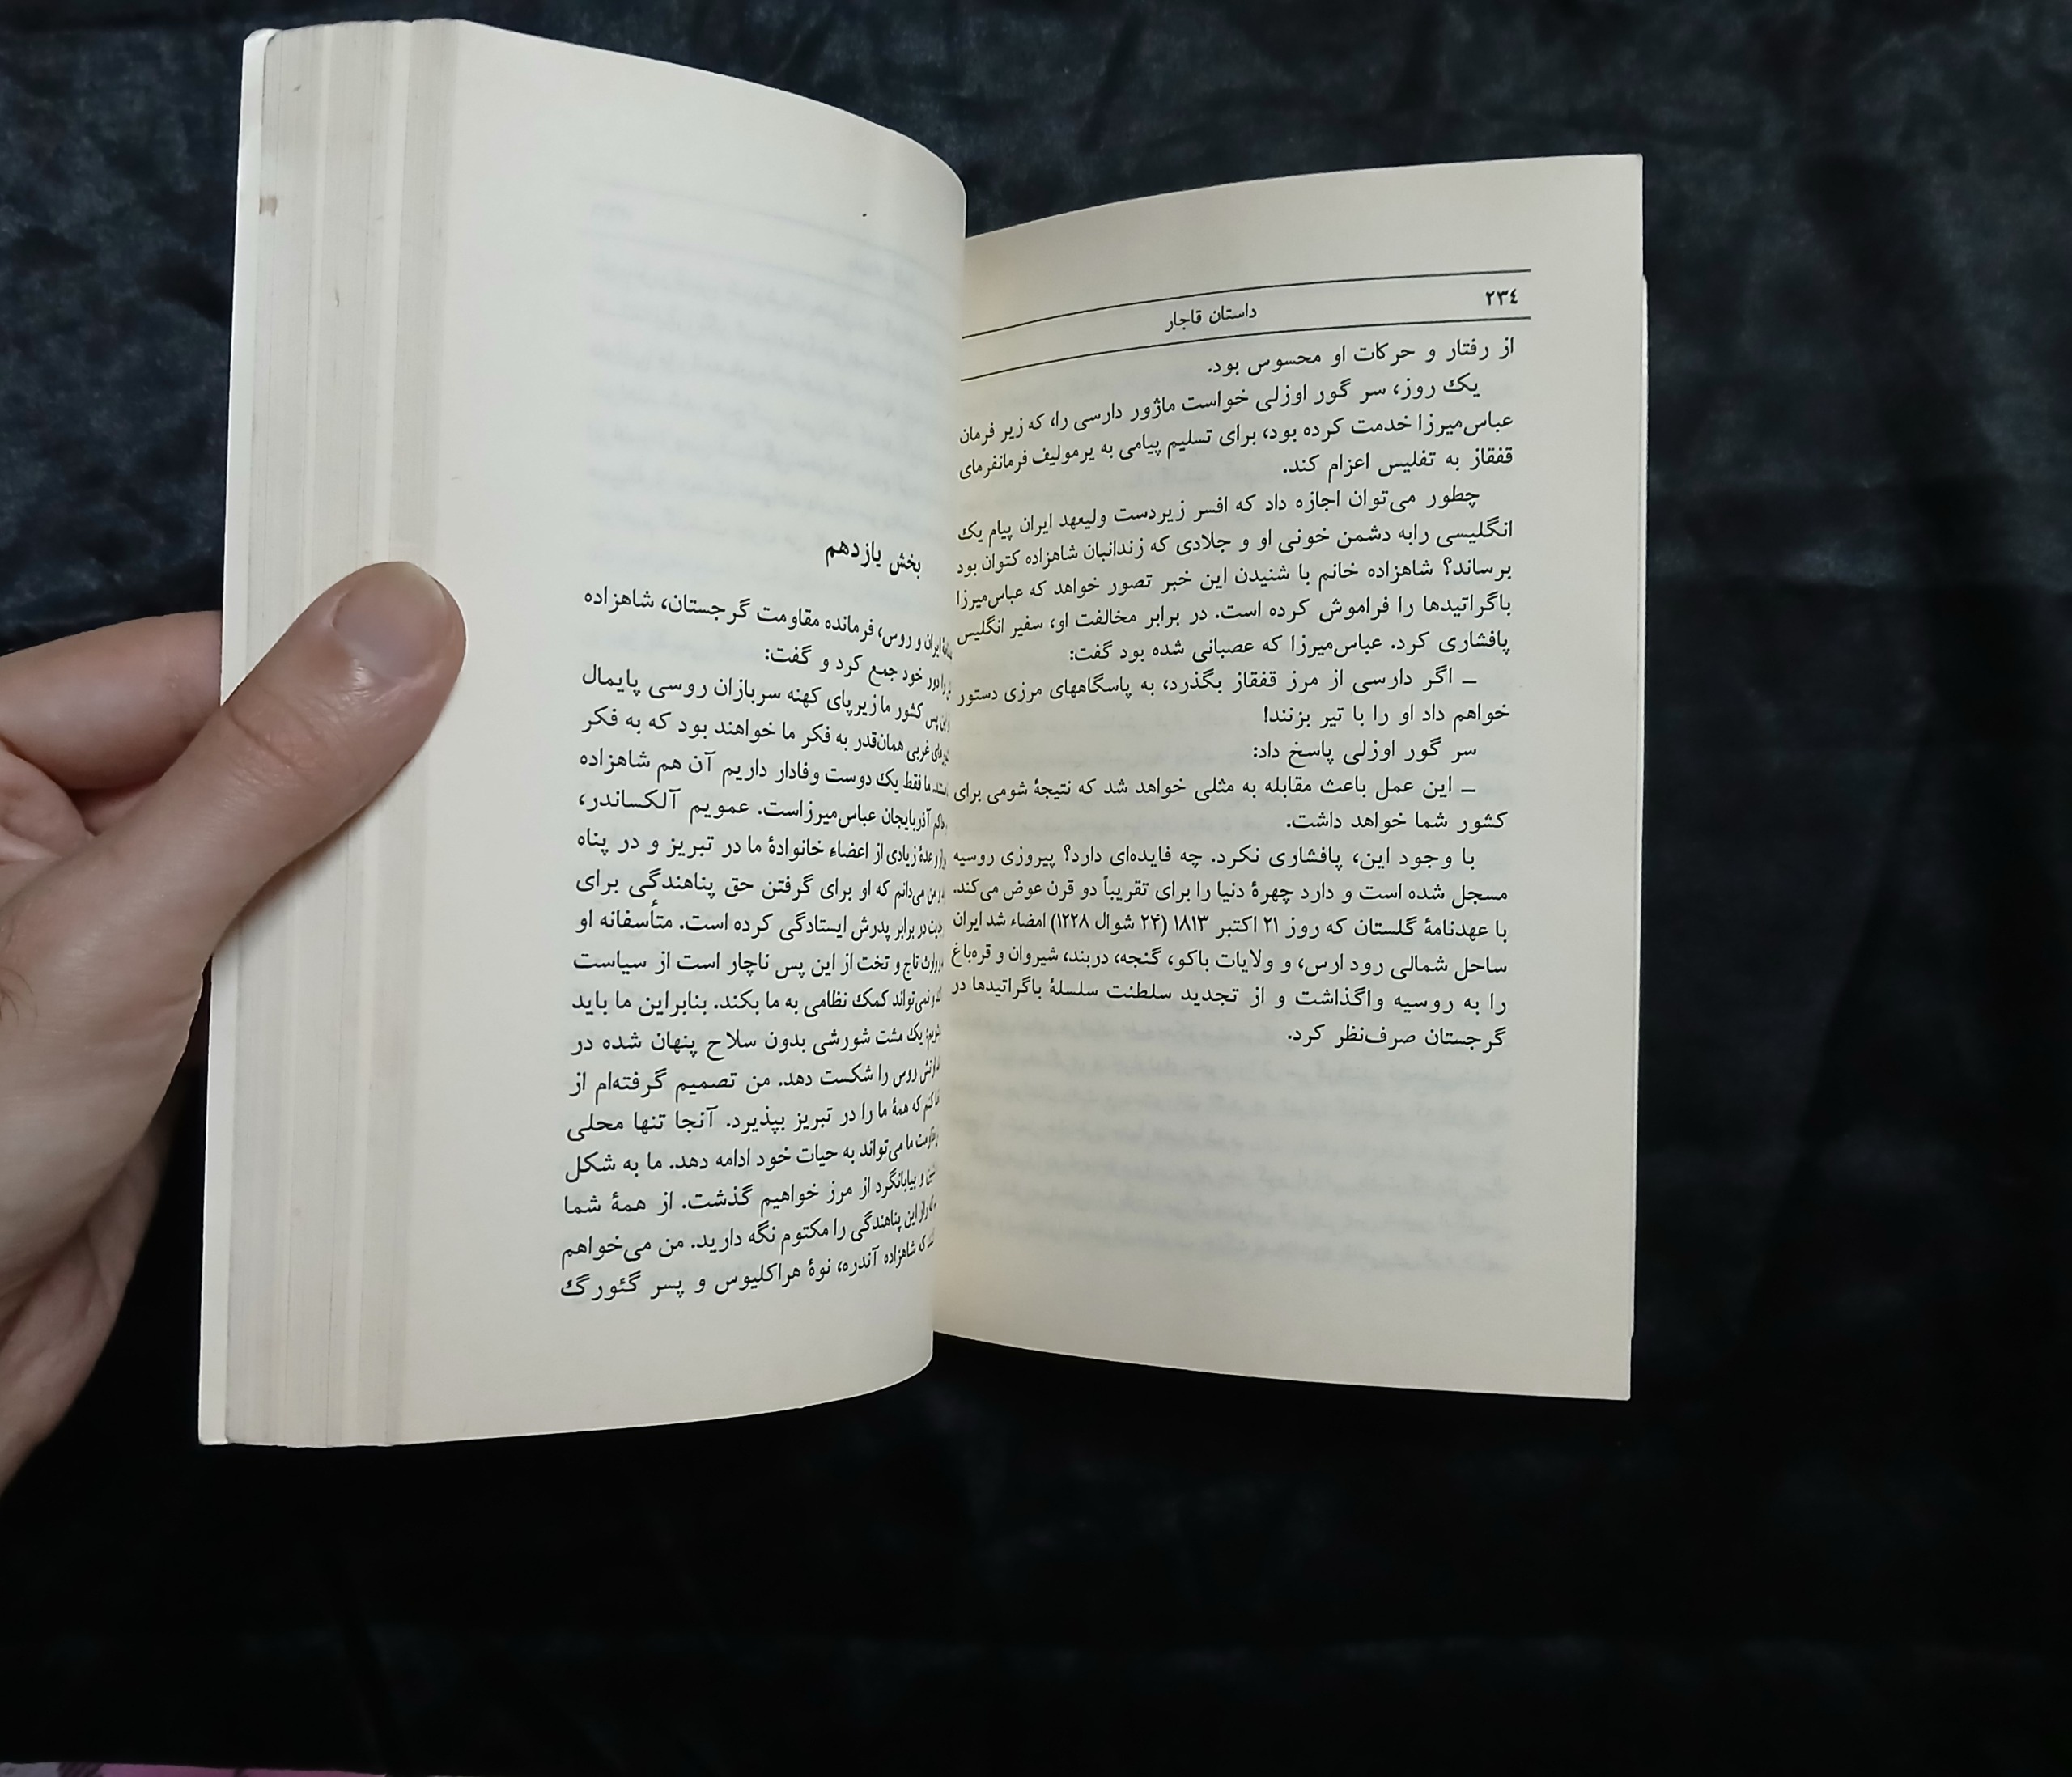 ۲۳۴
داستان قاجار
از رفتار و حرکات او محسوس بود.
یک روز، سر گور اوزلی خواست ماژور دارسی را، که زیر فرمان
عباس‌میرزا خدمت کرده بود، برای تسلیم پیامی به یرمولیف فرمانفرمای
قفقاز به تفلیس اعزام کند.
چطور می‌توان اجازه داد که افسر زیردست ولیعهد ایران پیام یک
انگلیسی رابه دشمن خونی او و جلادی که زندانبان شاهزاده کتوان بود
برساند؟ شاهزاده خانم با شنیدن این خبر تصور خواهد که عباس‌میرزا
باگراتیدها را فراموش کرده است. در برابر مخالفت او، سفیر انگلیس
پافشاری کرد. عباس‌میرزا که عصبانی شده بود گفت:
ـ اگر دارسی از مرز قفقاز بگذرد، به پاسگاههای مرزی دستور
خواهم داد او را با تیر بزنند!
سر گور اوزلی پاسخ داد:
ـ این عمل باعث مقابله به مثلی خواهد شد که نتیجهٔ شومی برای
کشور شما خواهد داشت.
با وجود این، پافشاری نکرد. چه فایده‌ای دارد؟ پیروزی روسیه
مسجل شده است و دارد چهرهٔ دنیا را برای تقریباً دو قرن عوض می‌کند.
با عهدنامهٔ گلستان که روز ۲۱ اکتبر ۱۸۱۳ (۲۴ شوال ۱۲۲۸) امضاء شد ایران
ساحل شمالی رود ارس، و ولایات باکو، گنجه، دربند، شیروان و قره‌باغ
را به روسیه واگذاشت و از تجدید سلطنت سلسلهٔ باگراتیدها در
گرجستان صرف‌نظر کرد.
بخش یازدهم
ایران و روس، فرمانده مقاومت گرجستان، شاهزاده
را دور خود جمع کرد و گفت:
پس کشور ما زیرپای کهنه سربازان روسی پایمال
غربی همان‌قدر به فکر ما خواهند بود که به فکر
ما فقط یک دوست وفادار داریم آن هم شاهزاده
آذربایجان عباس‌میرزاست. عمویم آلکساندر،
و عدهٔ زیادی از اعضاء خانوادهٔ ما در تبریز و در پناه
من می‌دانم که او برای گرفتن حق پناهندگی برای
در برابر پدرش ایستادگی کرده است. متأسفانه او
وارث تاج و تخت از این پس ناچار است از سیاست
و نمی‌تواند کمک نظامی به ما بکند. بنابراین ما باید
یک مشت شورشی بدون سلاح پنهان شده در
ارتش روس را شکست دهد. من تصمیم گرفته‌ام از
کنم که همهٔ ما را در تبریز بپذیرد. آنجا تنها محلی
ما می‌تواند به حیات خود ادامه دهد. ما به شکل
و بیابانگرد از مرز خواهیم گذشت. از همهٔ شما
راز این پناهندگی را مکتوم نگه دارید. من می‌خواهم
که شاهزاده آندره، نوهٔ هراکلیوس و پسر گئورگ